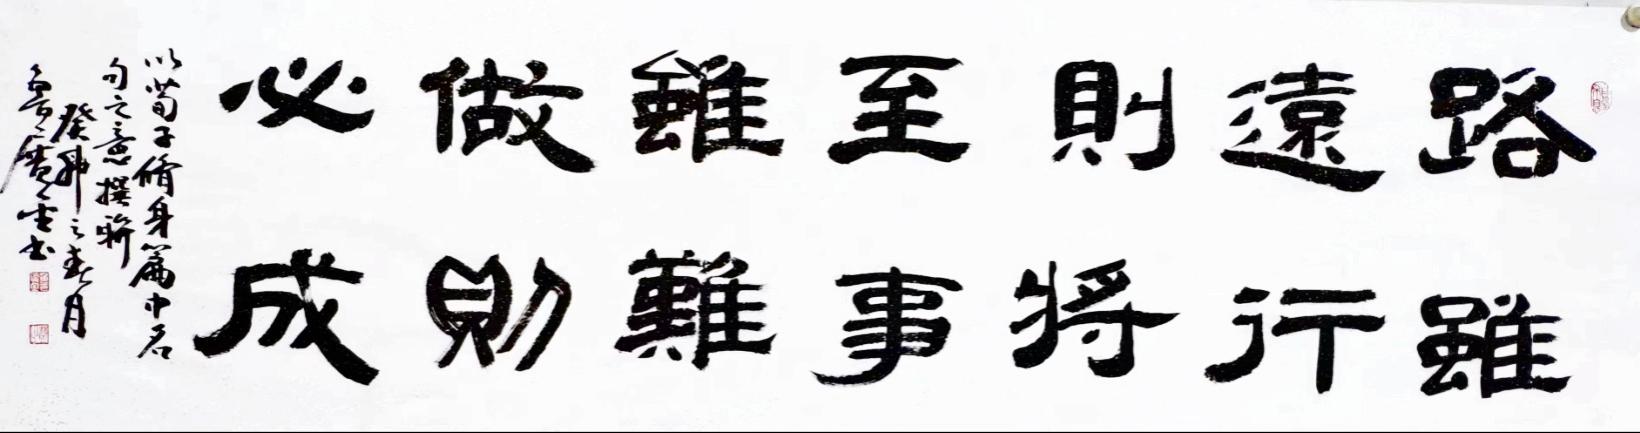 路雖
遠行
則將
至事
雖難
做則
必成
以荀子脩身篇中名
句之意撰聯
癸卯之春月